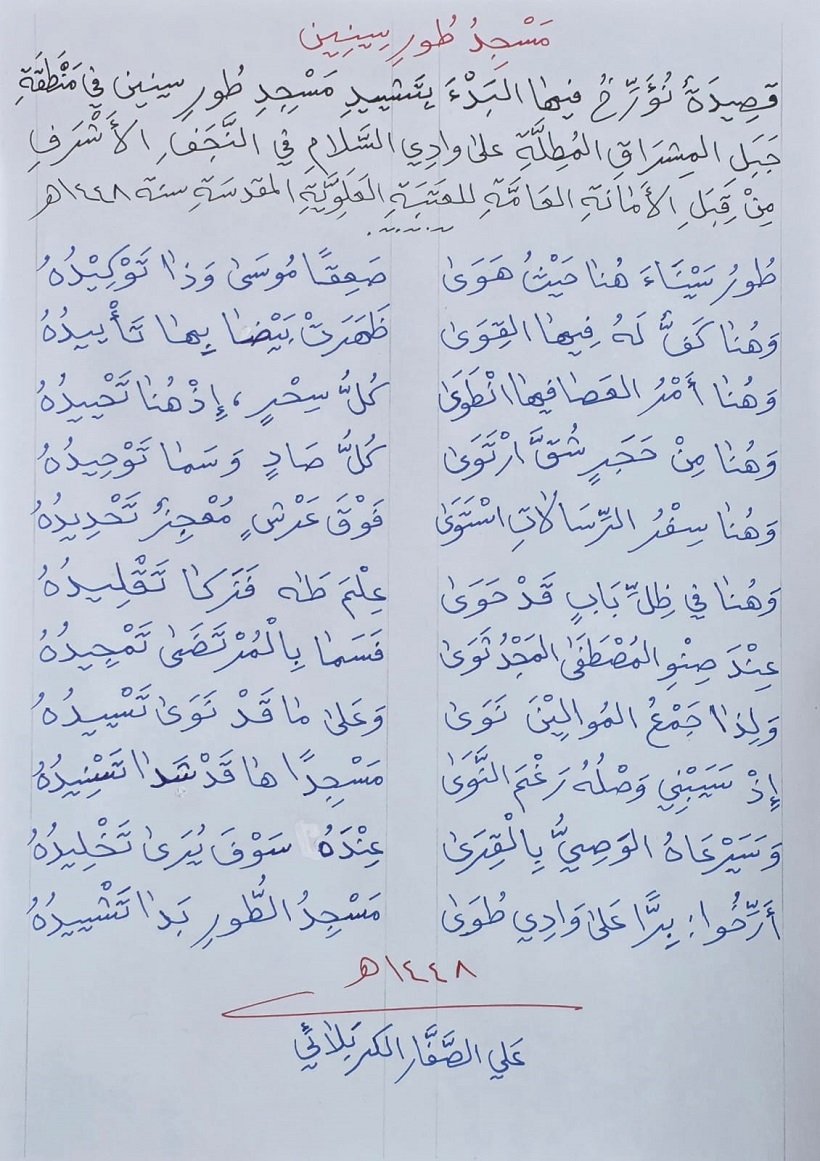 مَسْجِدُ طُورِ سِينِين
قَصِيدَةٌ نُؤَرِّخُ فِيهَا البَدْءَ بِتَشييدِ مَسْجِدِ طُورِ سينين في مَنْطَقَةِ
جَبَلِ المِشرَاقِ المُطِلَّةِ على وادِي السَّلامِ في النَّجَفِ الأَشْرَفِ
مِنْ قِبَلِ الأَمَانَةِ العَامَّةِ للعَتَبَةِ العَلَوِيَّةِ المقدسَةِ سنة ١٤٤٨هـ
طُورُ سَيْنَاءَ هُنا حَيْثُ هَوَى صَعِقًا مُوسَى وَذَا تَوْكِيْدُهُ
وَهُنا كَفٌّ لَهُ فِيهَا القِوَى ظَهَرَتْ بَيْضَا بِهَا تَأْيِيدُهُ
وَهُنا أَمْرُ العَصَا فيها انْطَوَى كُلُّ سِحْرٍ، إِذْ هُنا تَحْيِيدُهُ
وَهُنا مِنْ حَجَرٍ شُقَّ ارْتَوَى كُلُّ صَادٍ وَسَمَا تَوْحِيدُهُ
وَهُنا سِفْرُ الرِّسَالَاتِ اسْتَوَى فَوْقَ عَرْشٍ مُعْجِزٌ تَحْدِيدُهُ
وَهُنا في ظِلِّ بَابٍ قَدْ حَوَى عِلْمَ طَهَ فَزَكَا تَقْلِيدُهُ
عِنْدَ صِنْوِ المُصْطَفَى المَجْدُ ثَوَى فَسَمَا بِالْمُرْتَضَى تَمْجِيدُهُ
وَلِذَا جَمْعُ المُوالِيْنَ نَوَى وَعَلَى مَا قَدْ نَوَى تَسْيِيدُهُ
إِذْ سَيَبْنِي وَصْلُهُ رَغْمَ النَّوَى مَسْجِدًا هَا قَدْ شَدَا تَسْنِيدُهُ
وَسَيَرْعَاهُ الوَصِيُّ بِالْقِرَى عِنْدَهُ سَوْفَ يُرَى تَخْلِيدُهُ
أَرِّخُوا: بِرًّا عَلَى وَادِي طُوَى مَسْجِدُ الطُّورِ بَدَا تَشْيِيدُهُ
١٤٤٨هـ
عَلي الصَّفَّار الكربَلائيّ